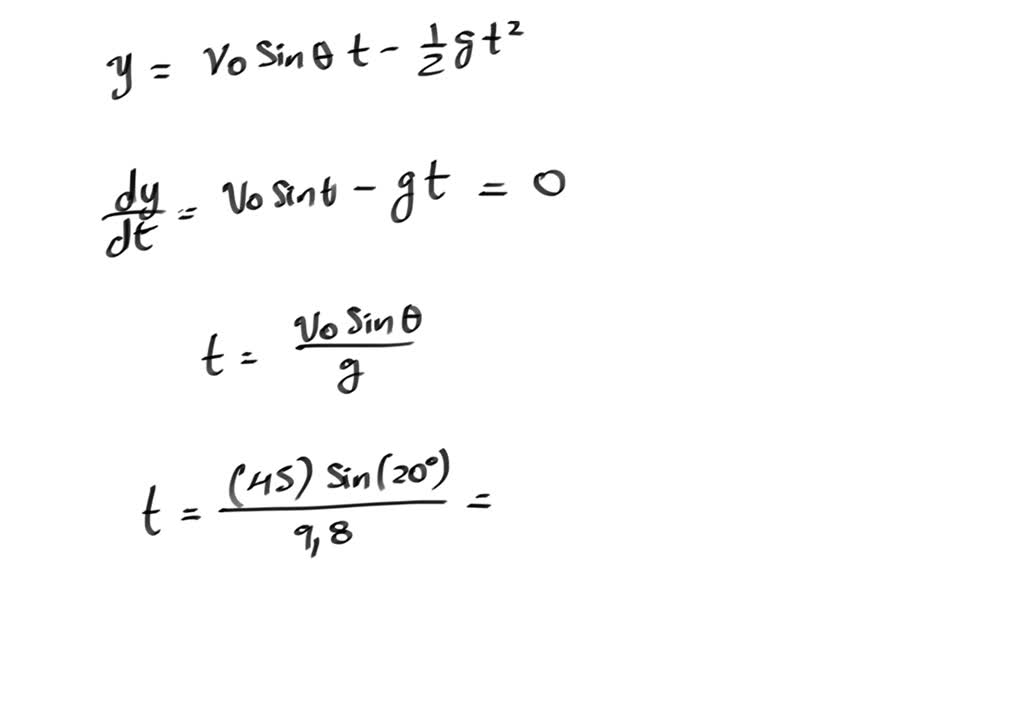 y = v₀ sinθ t - ½gt²
dy/dt = v₀ sinθ - gt = 0
t = v₀ sinθ / g
t = (45) sin(20°) / 9,8 =